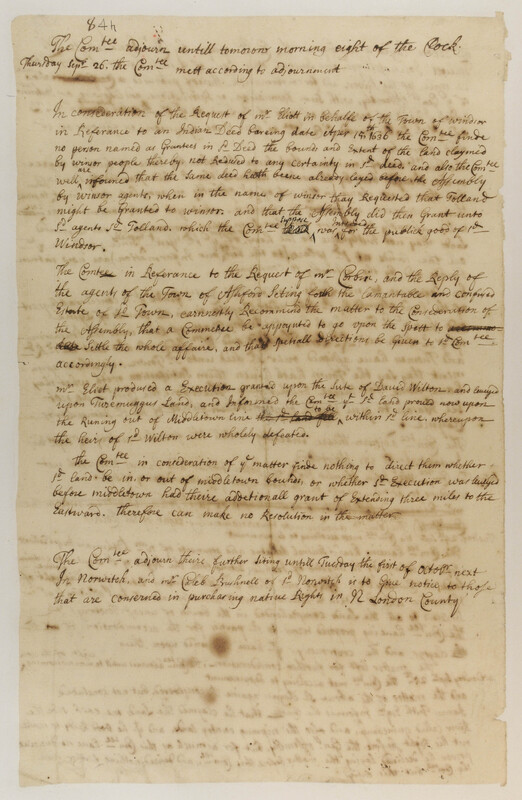 84h
The Com:tee adjourn untill tomorow morning eight of the Clock.
Thursday Sept. 26. the Com:tee mett according to adjournment
In consideration of the Request of mr. Eliott in behalfe of the Town of windsor
in Referance to an Indian Deed bareing date Apr 15th 1636 the Com:tee finde
no person named as Grantees in sd. Deed the bounds and Extent of the land claymed
by winsor people thereby, not Reduced to any certainty in sd. deed, and also the Com:tee
well are informed that the same deed hath beene already leged before the Assembly
by winsor agents, when in the names of winsor they Requested that Tolland
might be Granted to winsor. and that the Assembly did then Grant unto
sd. agents sd. Tolland, which the Com:tee was for the publick good of sd.
Windsor.
The Comtee in Referance to the Request of mr. Corbin, and the Reply of
the agents of the Town of Ashford Seting forth the lamantable and confused
Estate of sd. Town, earnestly Recommind the matter to the Consideration of
the Assembly, that a Commetee be appoynted to go upon the Spott to
Settle the whole affaire, and that speciall directions be given to sd. Com:tee
accordingly.
mr. Eliot produced a Execution granted upon the sute of David Wilton, and leuyed
upon Turemuggus Land, and Informed the Com:tee yt. sd. land proved now upon
the Runing out of Middletown line to be within sd. line, whereupon
the heirs of sd. Wilton were wholely defeated.
the Com:tee in consideration of ye matter finde nothing to direct them whether
sd. lands be in, or out of middletown bounds, or whether sd. Execution was leuyed
before middletown had theire addetionall grant of Extending three miles to the
Eastward. Therefore can make no Resolution in the matter.
The Com:tee adjourn theire further siting untill Tuesday the first of Octobr. next
In Norwich, and mr. Caleb Bushnell of sd. Norwich is to give notice to those
that are concerned in purchasing native Rights in N London County